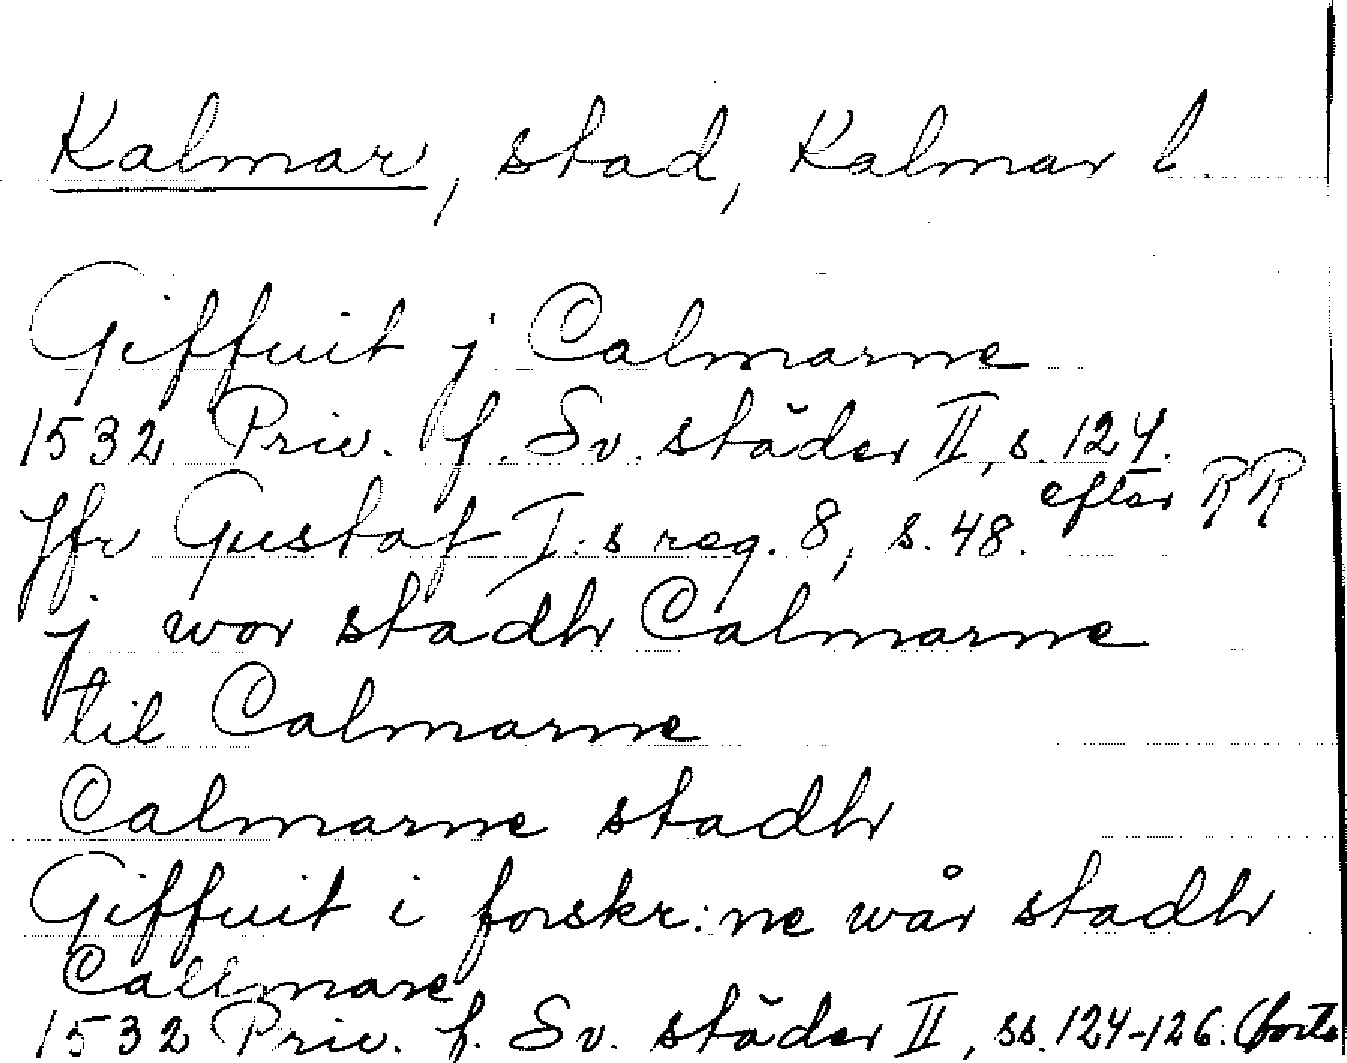 Kalmar, stad, Kalmar l.
Giffuit j Calmarne
1532 Priv. f. Sv. städer II, s. 124.
Jfr Gustaf I:s reg. 8, s. 48. efter RR
j wor stadh Calmarne
til Calmarne
Calmarne stadh
Giffuit i forskr:ne wår stadh
Callmare
1532 Priv. f. Sv. städer II, ss. 124-126. (forts